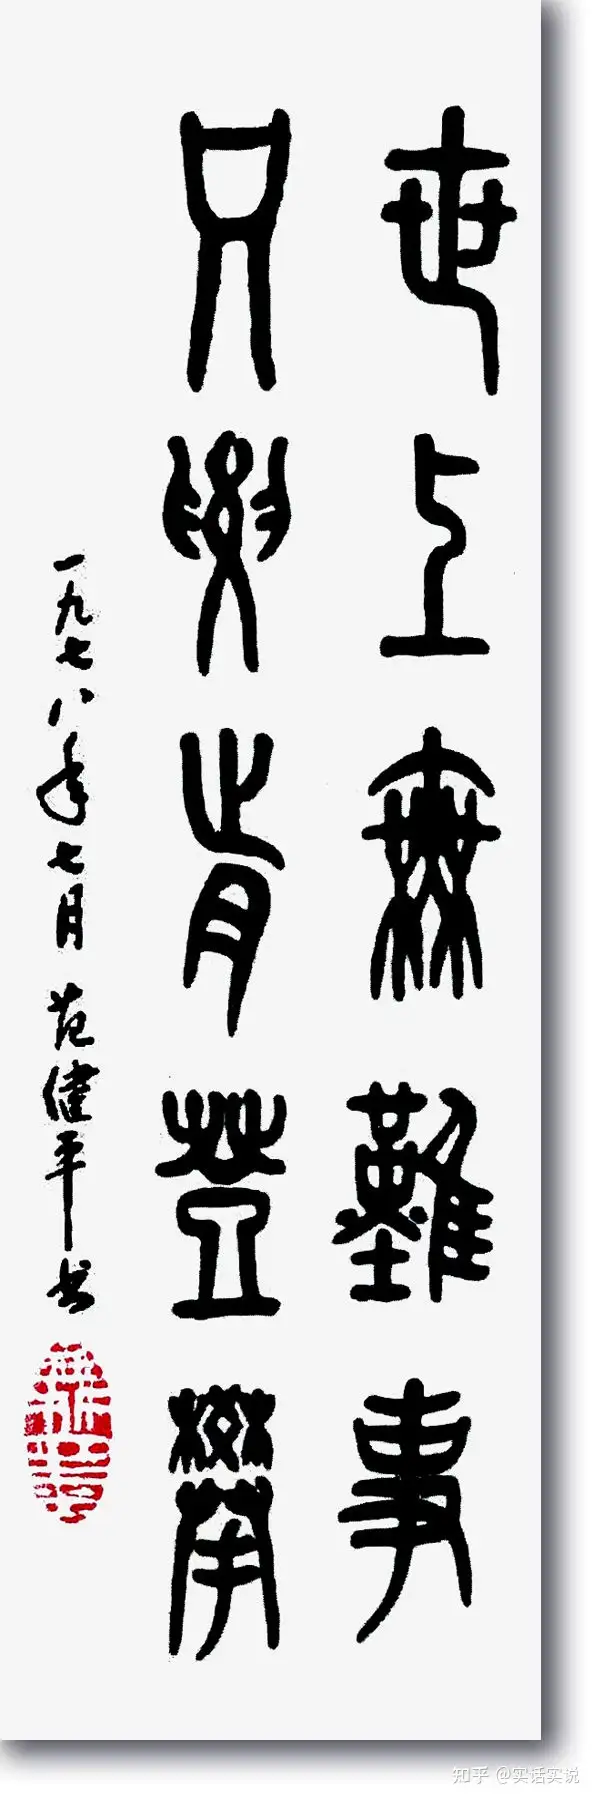 世上無難事
只要肯登攀
一九七八年七月范健平书
知乎 @实话实说